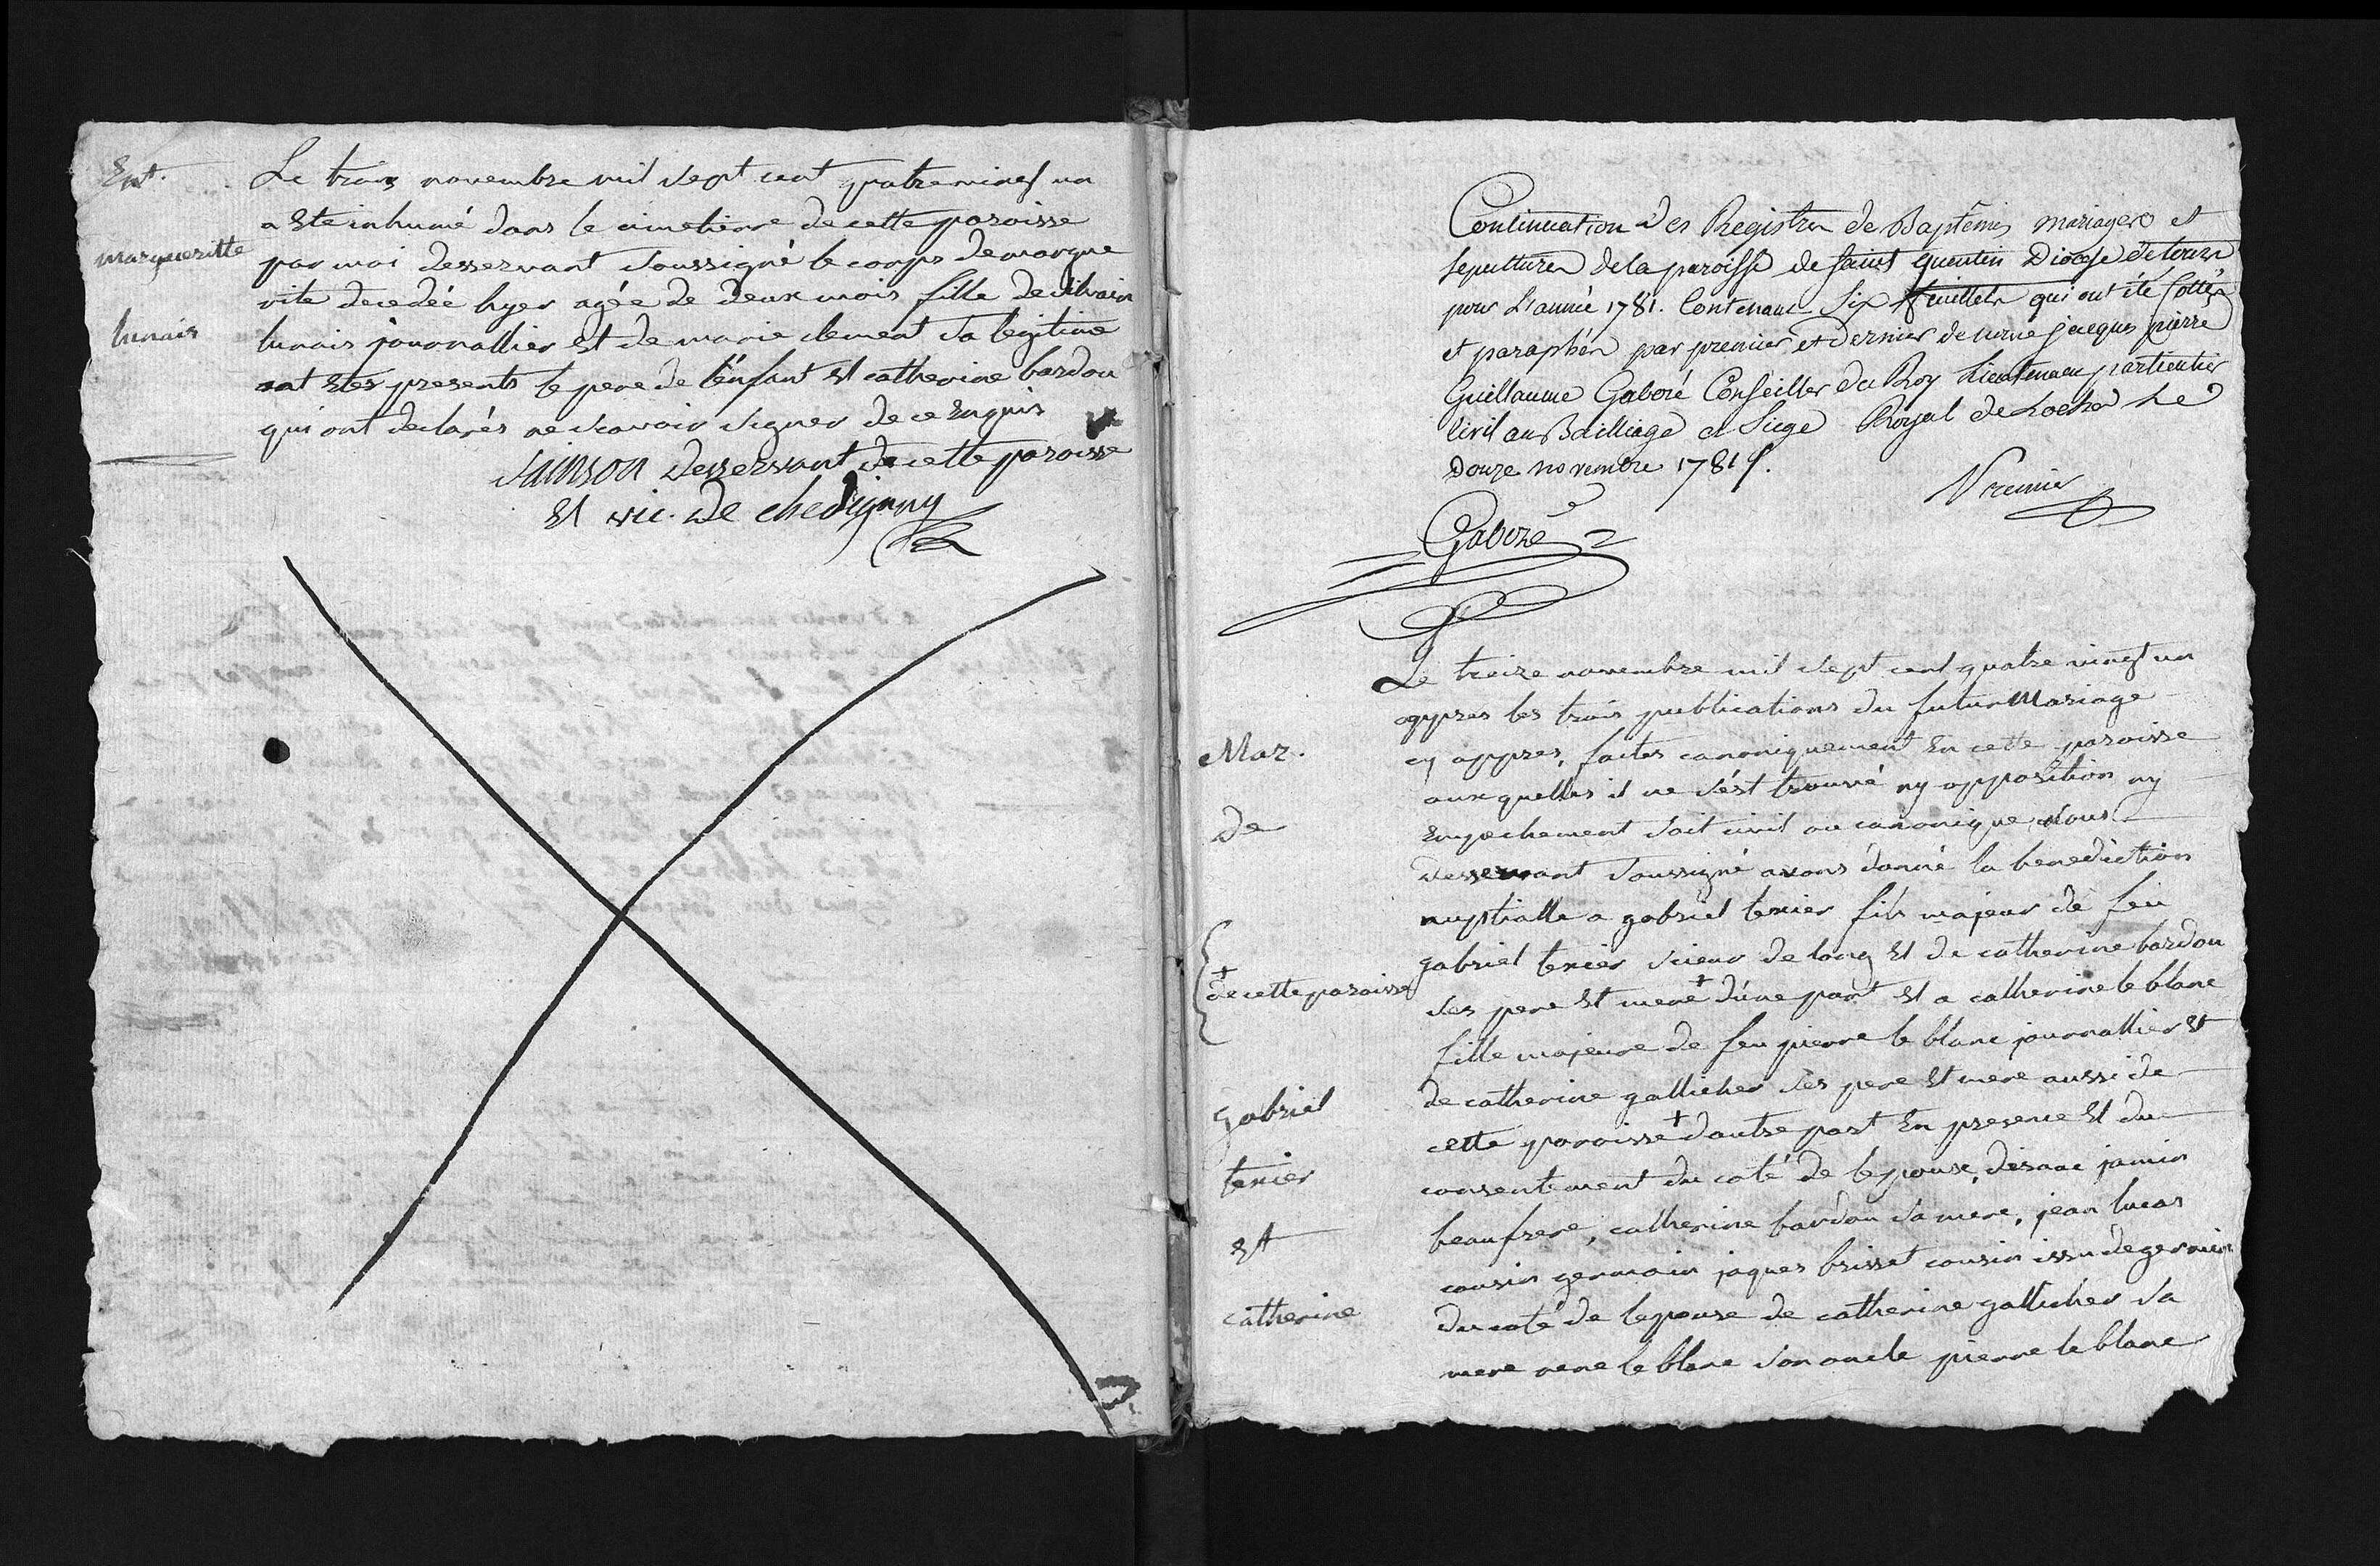 Ent.
margueritte
lunais
Le trois novembre mil sept cent quatre vingt un
a Ete inhumé dans le cimetierre de cette paroisse
par moi desservant soussigné le corps de margue
rite decedée hyer agée de deux mois fille de silvain
lunais journallier Et de marie clement sa legitime
ont Etés presents le pere de l'enfant Et catherine bardou
qui ont declarés ne scavoir signer de ce Enquis
Sainson desservant de cette paroisse
Et vic. de chedigny
Continuation des Registres de Baptêmes mariages et
sepultures de la paroisse de saint quentin Diocese de tours
pour L'année 1781. Contenant Six feuillets qui ont été Cottés
et paraphés par premier et Dernier de nous jacques pierre
Guillaume Gaboré Conseiller du Roy Lieutenant particulier
Civil au Bailliage et Siege Royal de Loches Le
Douze novembre 1781 /.
Premier
Gaboré
Le treize novembre mil sept cent quatre vingt un
appres les trois publications du futur Mariage
Mar.
cy appres, faites canoniquement En cette paroisse
auxquelles il ne s'est trouvé ny opposition ny
de
Empechement soit civil ou canonique, Nous
desservant soussigné avons donné la benediction
nuptialle a gabriel texier fils majeur de feu
gabriel texier scieur de long Et de catherine bardou
+ de cette paroisse
ses pere Et mere + d'une part Et a catherine le blanc
fille majeure de feu pierre le blanc journallier Et
gabriel
de catherine gallicher ses pere Et mere aussi de
cette paroisse + d'autre part En presence Et du
texier
consentement du coté de lepoux, d'isaac jamin
Et
beaufrere, catherine bardou sa mere, jean lucas
cousin germain jaques brisset cousin issu de germain
catherine
du coté de lepouse de catherine gallicher sa
mere rene le blanc son oncle pierre le blanc